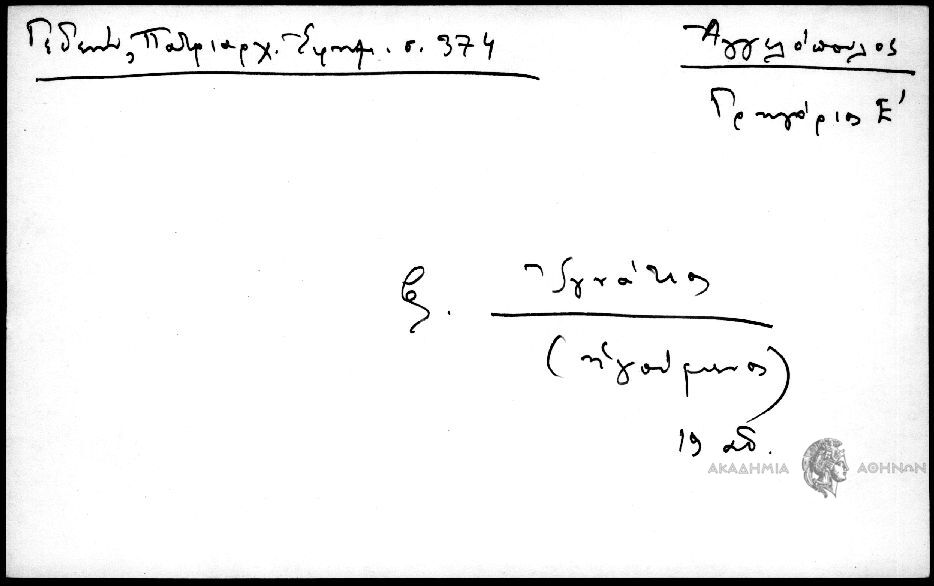 Γεδεών, Πατριαρχ. Ἐφημ. σ. 374
Ἀγγελόπουλος
Γρηγόριος Ε'
β.
Ἰγνάτιος
(ἡγούμενος)
19 αἰ.
ΑΚΑΔΗΜΙΑ ΑΘΗΝΩΝ